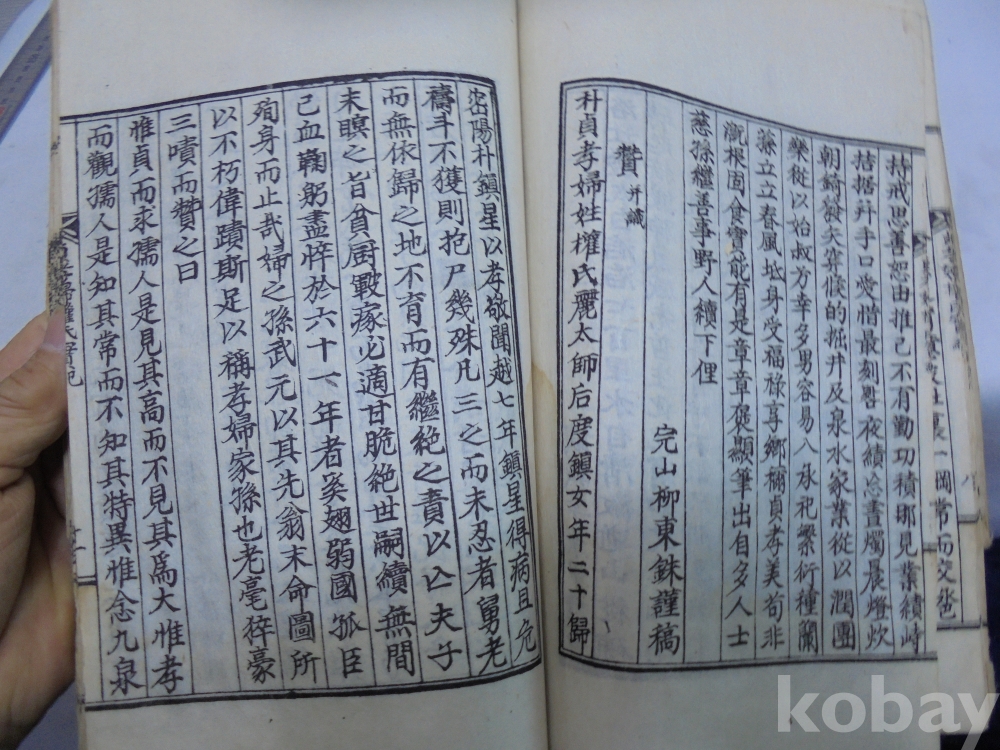 持戒思善恕由推己不有勤功積那見業績峙
拮据幷手口愛惜最刻咎夜績念晝燭晨燈炊
朝錡發矢穿候的拙井及泉水家業從以潤團
樂從以始叔方幸多男容易入承祀繁衍種蘭
蓀立立春風坻身受福祿享鄉稱貞孝美苟非
漑根固食實能有是章章褒顯筆出自多人士
慈孫繼善事野人續下俚
完山柳東銖謹稿
贊 幷識
朴貞孝婦姓權氏麗太師后度鎭女年二十歸
密陽朴鎭星以孝敬聞越七年鎭星得病且危
禱斗不獲則抱尸幾殊凡三之而未忍者舅老
而無依歸之地不育而有繼絶之責以亾夫子
未瞑之旨貧厨歠瘃必適甘脆絶世嗣續無間
己血鞠躬盡悴於六十一年者奚翅弱國孤臣
殉身而止哉婦之孫武元以其先翁末命圖所
以不朽偉蹟斯足以稱孝婦家孫也老毫猝豪
三嘖而贊之曰
惟貞而求孺人是見其高而不見其爲大惟孝
而觀孺人是知其常而不知其特異惟念九泉
kobay